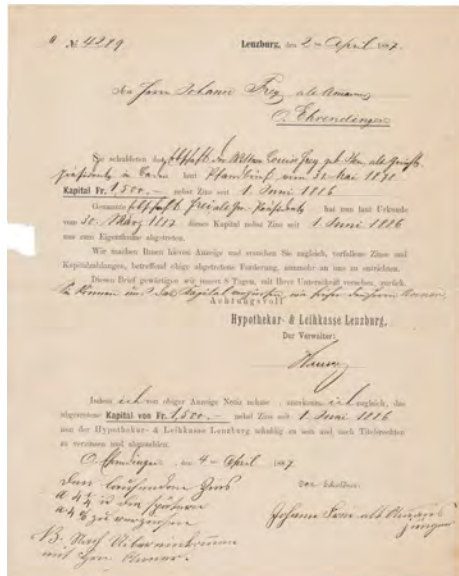 № 4289 Lenzburg, den 2 April 1887.
Herrn Johann Frey alt Amann
O. Ehrendingen
Sie schuldeten der Erbschaft der Wittwe Louise Frey geb. alt Gerichts-
präsidents in Baden laut Pfandbrief vom 30. Mai 1870
Kapital Fr. 1500.— nebst Zins seit 1. Juni 1886
Genannte Erbschaft Frei alt Ger. Präsidents hat nun laut Urkunde
vom 30. März 1887 dieses Kapital nebst Zins seit 1 Juni 1886
uns zum Eigenthume abgetreten.
Wir machen Ihnen hievon Anzeige und ersuchen Sie zugleich, verfallene Zinse und
Kapitalzahlungen, betreffend obige abgetretene Forderung, nunmehr an uns zu entrichten.
Diesen Brief gewärtigen wir innert 8 Tagen, mit Ihrer Unterschrift versehen, zurück.
Sie können uns das Kapital wie früher
Achtungsvoll
Hypothekar- & Leihkasse Lenzburg,
Der Verwalter:
Indem ich von obiger Anzeige Notiz nehme, anerkenne ich zugleich, das
abgetretene Kapital von Fr. 1500.— nebst Zins seit 1 Juni 1886
nun der Hypothekar- & Leihkasse Lenzburg schuldig zu sein und nach Titelsrechten
zu verzinsen und abzuzahlen.
O. Ehrendingen, den 4 April 1887
Der Schuldner:
Den laufenden Zins
a 4 ½ u die spätern
a 4 % zu verzinsen
Johann Frei alt Amann
jünger
B. Nach Uebereinkommen
mit Hrn.